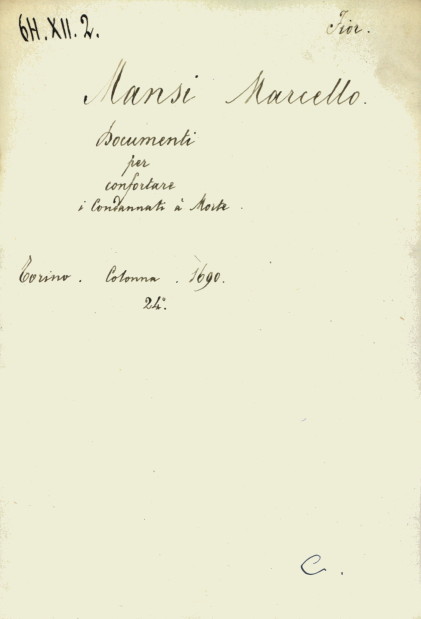 6H.XII.2.
Fior.
Mansi Marcello.
Documenti
per
confortare
i Condannati à Morte.
Torino. Colonna. 1690.
24°.
C.